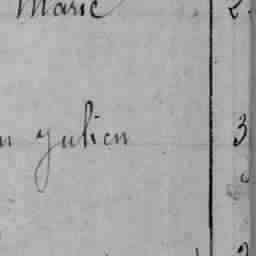 Marie 2
n Julien 3